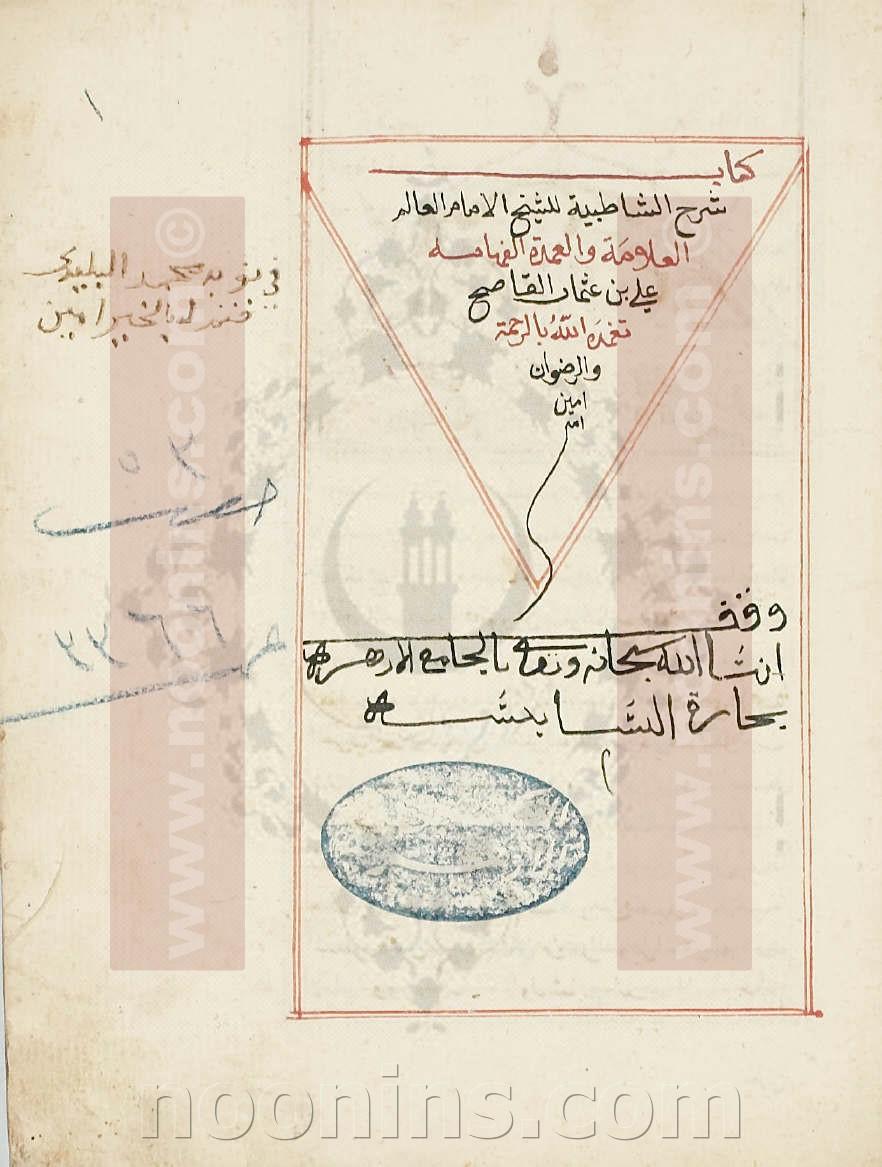 ١
كتاب
شرح الشاطبية للشيخ الامام العالم
العلامة والعمدة الفهامه
علي بن عثمان القاصح
تغمده الله بالرحمة
والرضوان
امين
امين
في نوبة محمد البليدى
بالخير امين
٥٢
٣٣٦٦
وقف
ان شا الله سبحانه وتعالى بالجامع الازهر
بحارة الشابشه
www.noonins.com ©
www.noonins.com ©
noonins.com